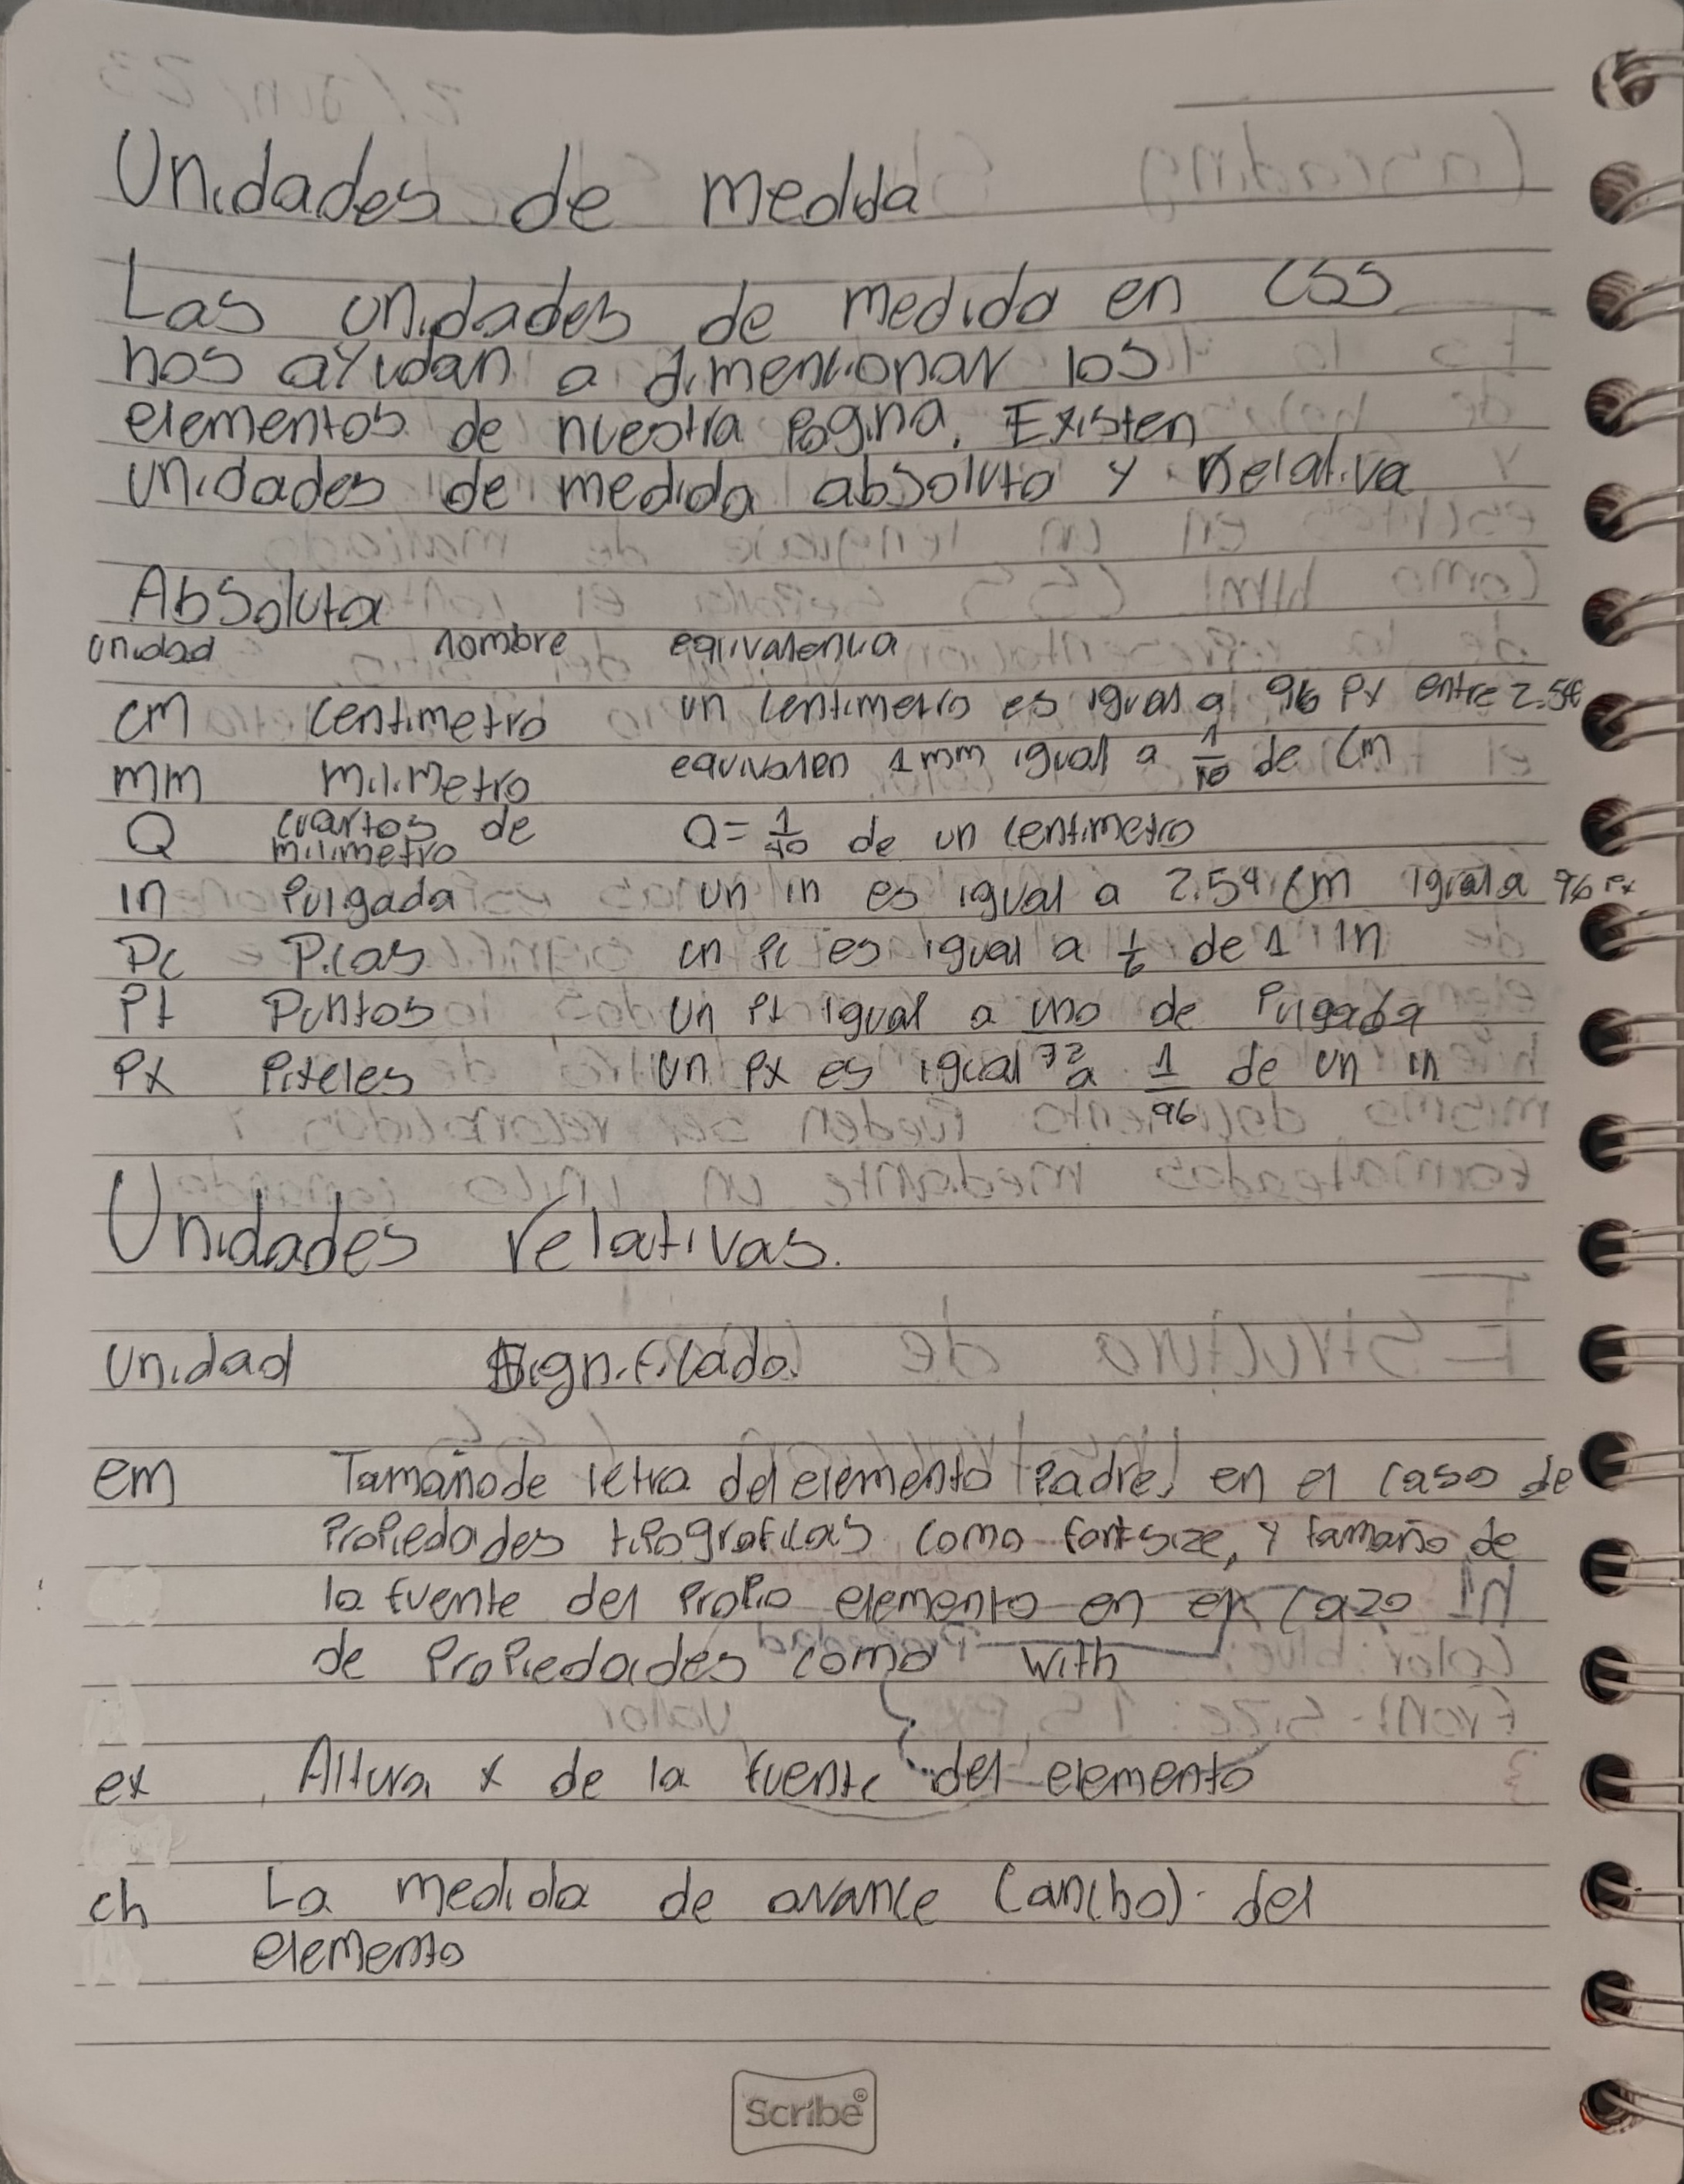 Unidades de medida
Las unidades de medida en CSS
nos ayudan a dimencionar los
elementos de nuestra pagina. Existen
unidades de medida absoluta y Relativa
Absoluta
unidad nombre equivalencia
cm centimetro un centimetro es igual a 96 px entre 2.54
mm milimetro equivalen 1mm igual a 1/10 de cm
Q cuartos de milimetro Q = 1/40 de un centimetro
in Pulgada un in es igual a 2.54 cm igual a 96 px
Pc Picas un Pc es igual a 1/6 de 1 in
Pt Puntos un Pt igual a uno de Pulgada
72
Px Pixeles un Px es igual a 1/96 de un in
Unidades relativas.
unidad Significado.
em Tamaño de letra del elemento Padre, en el caso de
Propiedades tipograficas como font size, y tamaño de
la fuente del propio elemento en el cazo
de Propiedades como with
ex Altura x de la fuente del elemento
ch La medida de avance (ancho) del
elemento
Scribe®